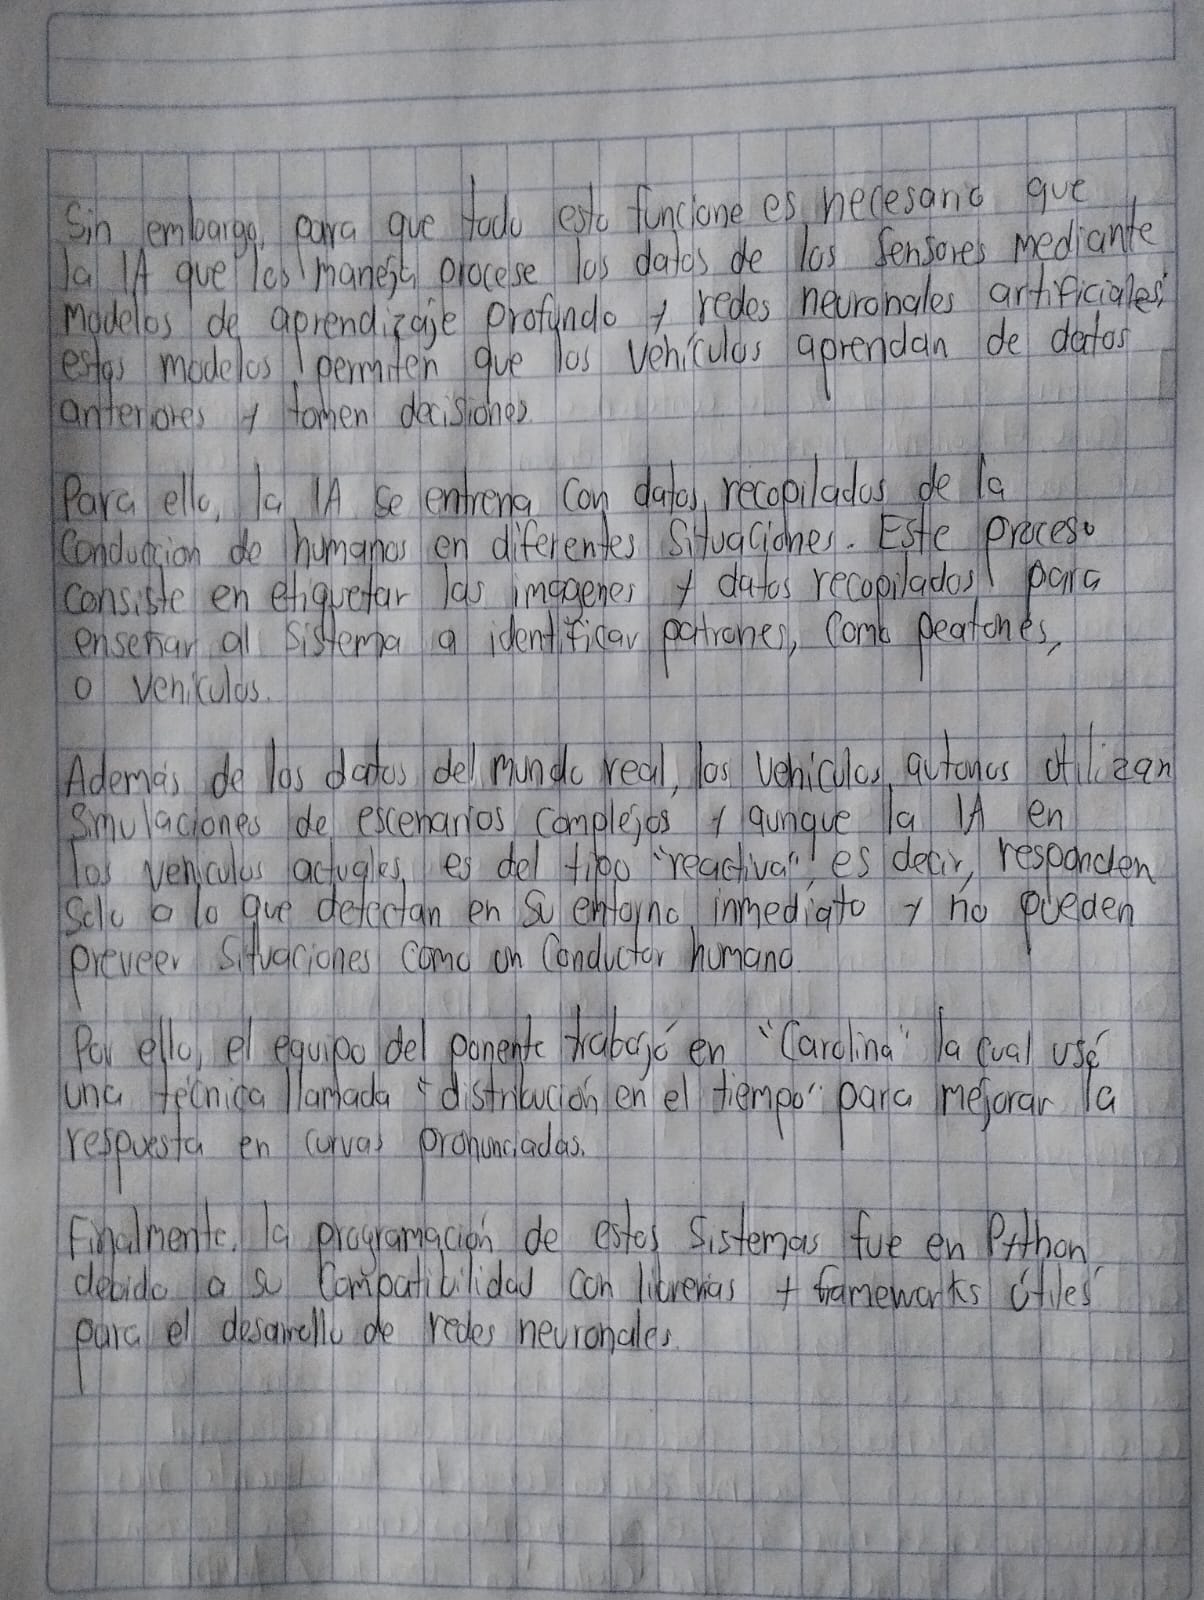 Sin embargo, para que todo esto funcione es necesario que
la IA que los maneja procese los datos de los sensores mediante
modelos de aprendizaje profundo y redes neuronales artificiales,
estos modelos permiten que los vehículos aprendan de datos
anteriores y tomen decisiones.
Para ello, la IA se entrena con datos recopilados de la
conducción de humanos en diferentes situaciones. Este proceso
consiste en etiquetar las imagenes y datos recopilados para
enseñar al sistema a identificar patrones, como peatones,
o vehiculos.
Además de los datos del mundo real, los vehiculos autonos utilizan
simulaciones de escenarios complejos y aunque la IA en
los vehiculos actuales, es del tipo "reactiva", es decir, responden
solo a lo que detectan en su entorno inmediato y no pueden
preveer situaciones como un conductor humano.
Por ello, el equipo del ponente trabajó en "Carolina" la cual usé
una técnica llamada "distribución en el tiempo" para mejorar la
respuesta en curvas pronunciadas.
Finalmente, la programación de estos sistemas fue en Python
debido a su compatibilidad con librerias y frameworks útiles
para el desarrollo de redes neuronales.